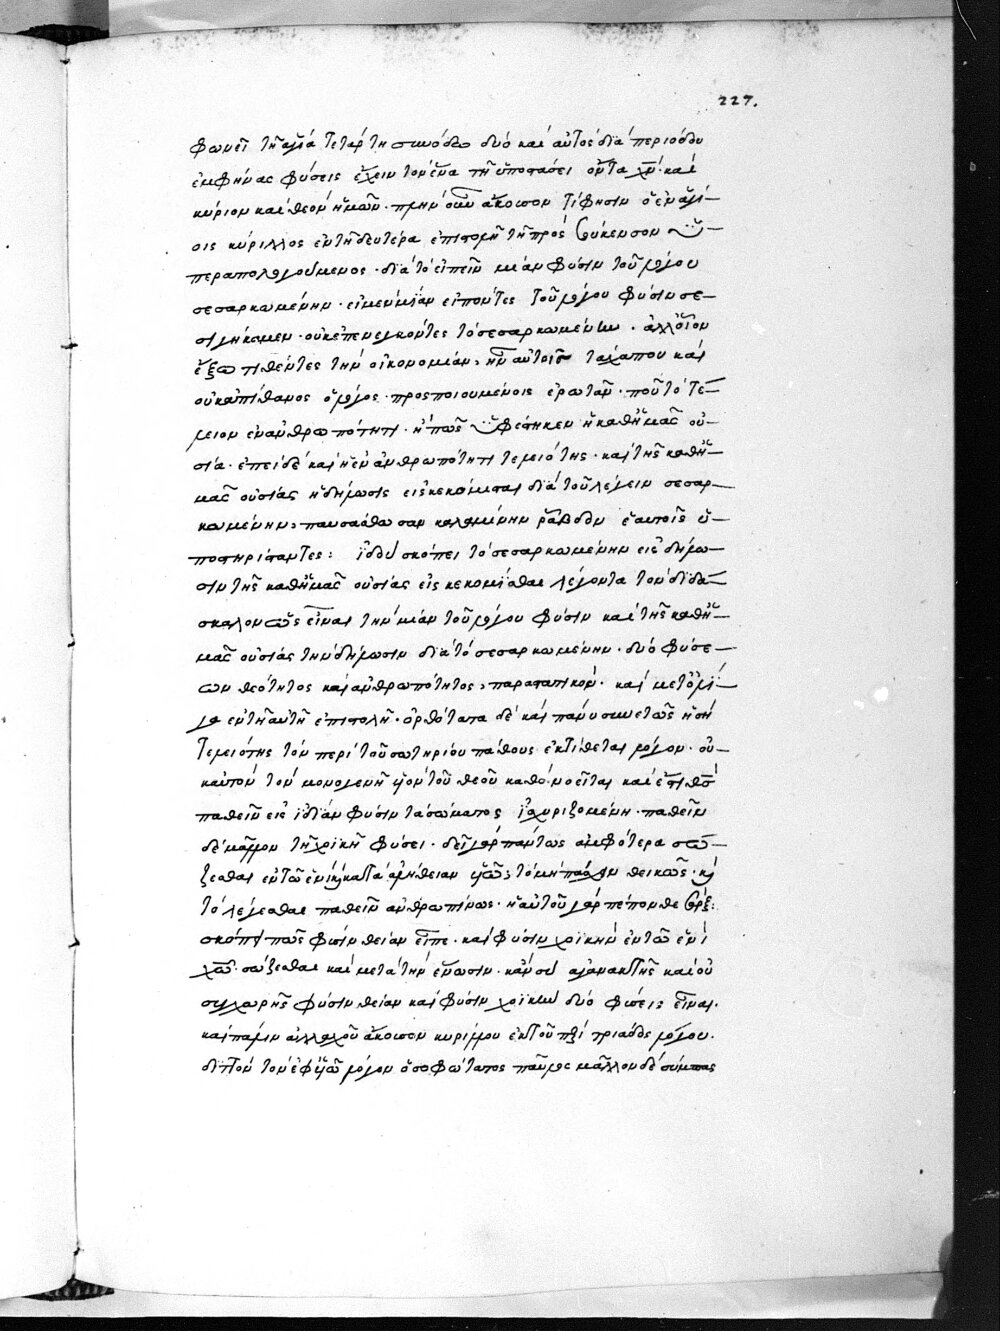 227.
φωνεῖ τῆ ἁγία τετάρτη συνόδω δυό καὶ αὐτὸς διὰ περιόδου
ἐμφήνας φύσεις ἔχειν τὸν ἕνα τῆ ὑποστάσει ὄντα χν̄· καὶ
κύριον καὶ θεὸν ἡμῶν· πλὴν οὖν ἄκουσον τί φησιν ὁ ἐν ἁγί-
οις κύριλλος ἐν τῆ δευτέρα ἐπιστολῆ τῆ πρὸς σούκενσον ὑ-
περαπολογούμενος· διὰ τὸ εἰπεῖν μίαν φύσιν τοῦ λόγου
σεσαρκωμένην· εἰ μὲν μίαν εἰπόντες τοῦ λόγου φύσιν σε-
σιγήκαμεν· οὐκ ἐπενεγκόντες τὸ σεσαρκωμένην· ἀλλ' οἷον
ἔξω τιθέντες τὴν οἰκονομίαν, ἦν αὐτοῖς τάχα που καὶ
οὐκ ἀπίθανος ὁ λόγος· προσποιουμένοις ἐρωτᾶν· ποῦ τὸ τέ-
λειον ἐν ἀνθρωπότητι· ἢ πῶς ὑφέστηκεν ἡ καθ' ἡμᾶς οὐ-
σία· ἐπεὶ δὲ καὶ ἡ ἐν ἀνθρωπότητι τελειότης· καὶ τῆς καθ' ἡ-
μᾶς οὐσίας ἡ δήλωσις εἰσκεκόμισται διὰ τοῦ λέγειν σεσαρ-
κωμένην, παυσάσθωσαν καλαμίνην ῥάβδον ἑαυτοῖς ὑ-
ποστηρίσαντες: ἰδοὺ σκόπει τὸ σεσαρκωμένην εἰς δήλω-
σιν τῆς καθ' ἡμᾶς οὐσίας εἰσκεκομίσθαι λέγοντα τὸν διδά-
σκαλον ὡς εἶναι τὴν μίαν τοῦ λόγου φύσιν καὶ τῆς καθ' ἡ-
μᾶς οὐσίας τὴν δήλωσιν διὰ τὸ σεσαρκωμένην· δυό φύσε-
ων θεότητος καὶ ἀνθρωπότητος, παραστατικόν· καὶ μετ' ὀλί-
γα ἐν τῆ αὐτῆ ἐπιστολῆ· ὀρθότατα δὲ καὶ πάνυ συνετῶς ἡ σὴ
τελειότης τὸν περὶ τοῦ σωτηρίου πάθους ἐκτίθεται λόγον· οὐ-
κ αὐτὸν τὸν μονογενῆ υἱὸν τοῦ θεοῦ καθὸ νοεῖται καὶ ἔστι θς̄
παθεῖν εἰς ἰδίαν φύσιν τὰ σώματος ἰσχυριζομένη· παθεῖν
δὲ μᾶλλον τῆ χοϊκῆ φύσει· δεῖ γὰρ πάντως ἀμφότερα σώ-
ζεσθαι ἐν τῶ ἑνὶ καὶ κατὰ ἀλήθειαν υἱῶ; τὸ μὴ πάσχειν θεικῶς· καὶ
τὸ λέγεσθαι παθεῖν ἀνθρωπίνως· ἡ αὐτοῦ γὰρ πέπονθε σάρξ:
σκόπει πῶς φύσιν θείαν εἶπε· καὶ φύσιν χοϊκὴν ἐν τῶ ἑνὶ
χω̄· σώζεσθαι καὶ μετὰ τὴν ἕνωσιν· κἂν σὺ ἀγανακτῆς καὶ οὐ
συγχωρῆς φύσιν θείαν καὶ φύσιν χοϊκὴν δύο φύσεις εἶναι.
καὶ πάλιν ἀλλαχοῦ ἄκουσον κυρίλλου ἐκ τοῦ περὶ τριάδος λόγου.
λόγον ὁ σοφώτατος παῦλος μᾶλλον δὲ σύμπας